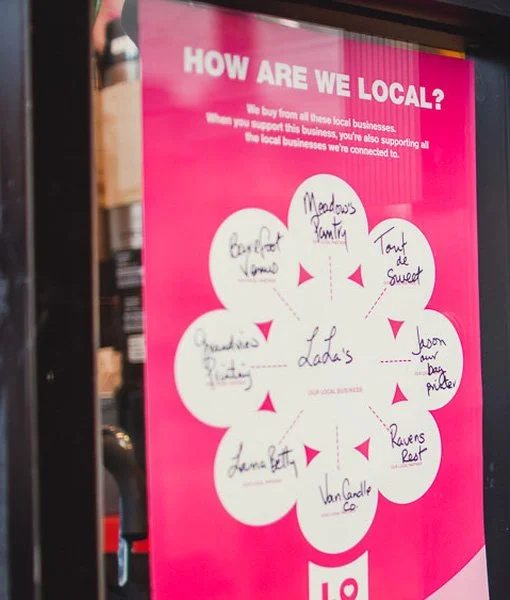 HOW ARE WE LOCAL?
We buy from all these local businesses.
When you support this business, you're also supporting all
the local businesses we're connected to.
Meadow's
Pantry
Tout
de
Sweet
Jason
our
bag
printer
Ravens
Rest
VanCandle
Co.
Lama Betty
Grandview
Printing
Barefoot
Venus
LaLa's
OUR LOCAL BUSINESS
LO